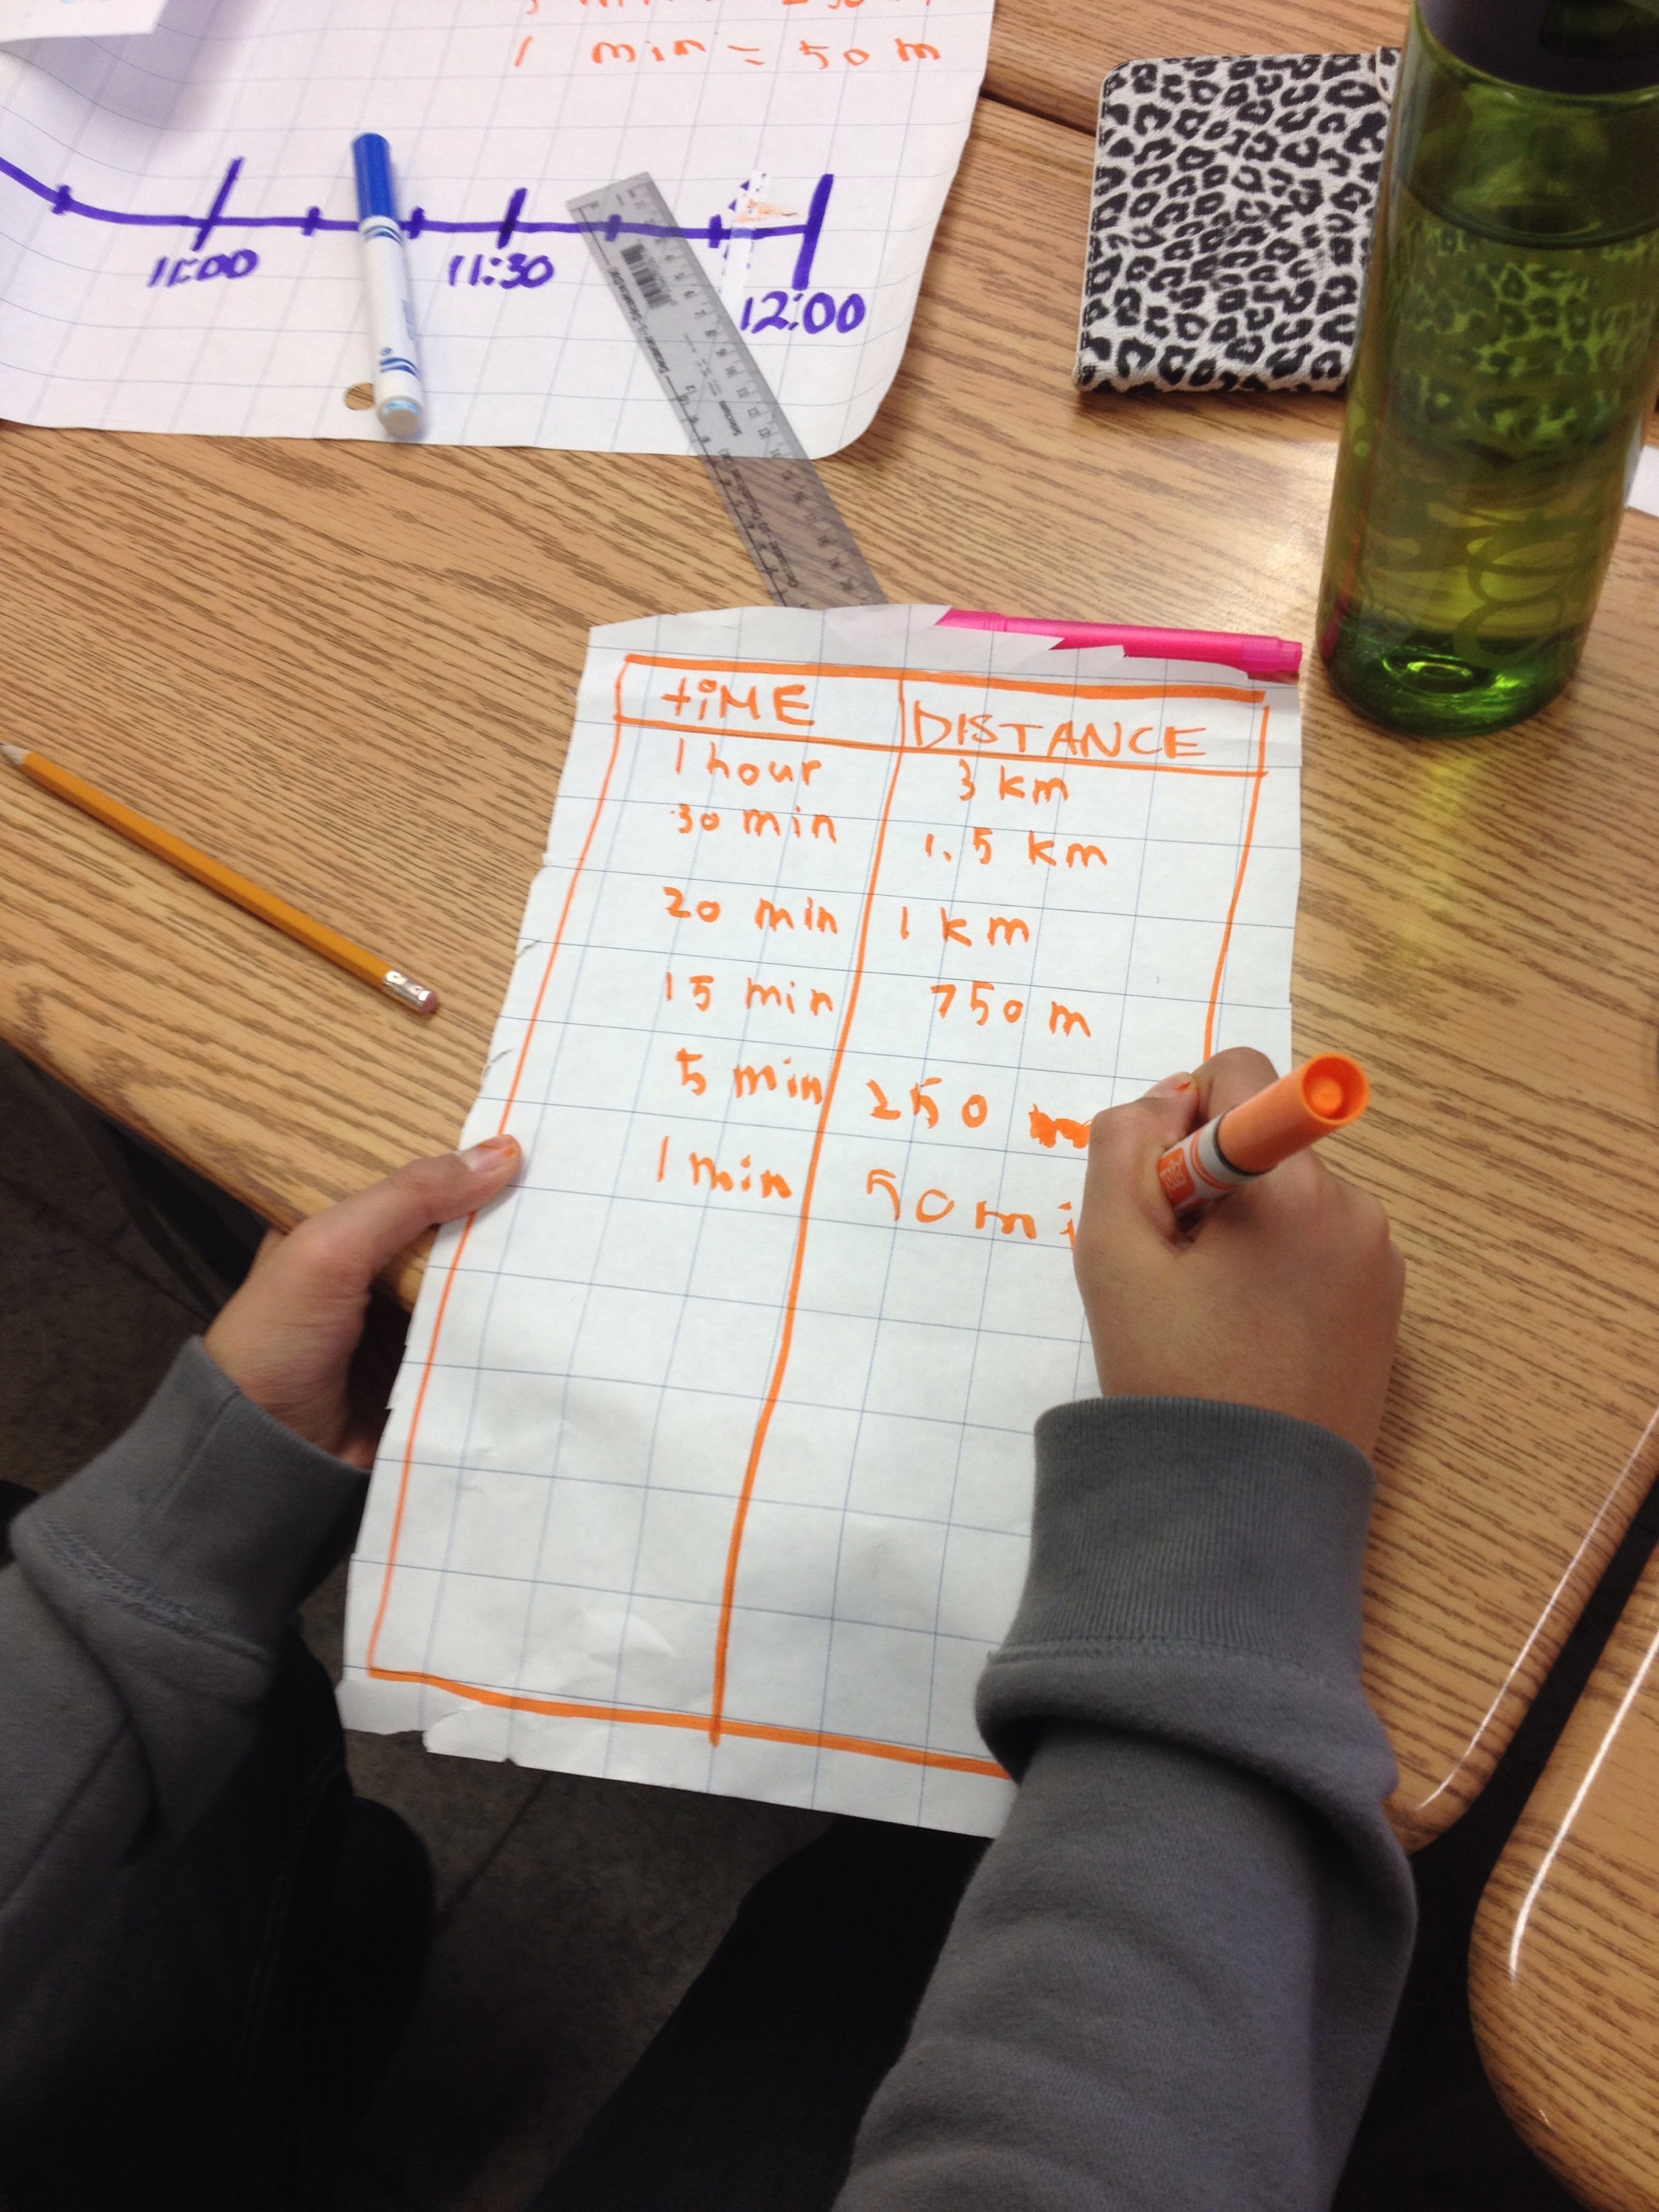 1 min = 50 m
11:00 11:30 12:00
tiME DISTANCE
1 hour 3 km
30 min 1.5 km
20 min 1 km
15 min 750 m
5 min 250 m
1 min 50 mi